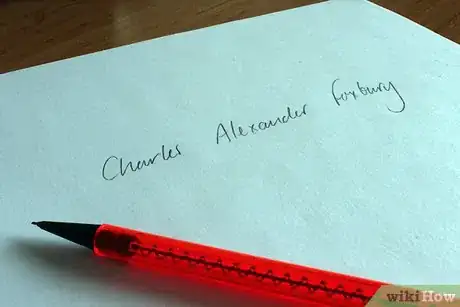 Charles Alexander Foxbury
wikiHow